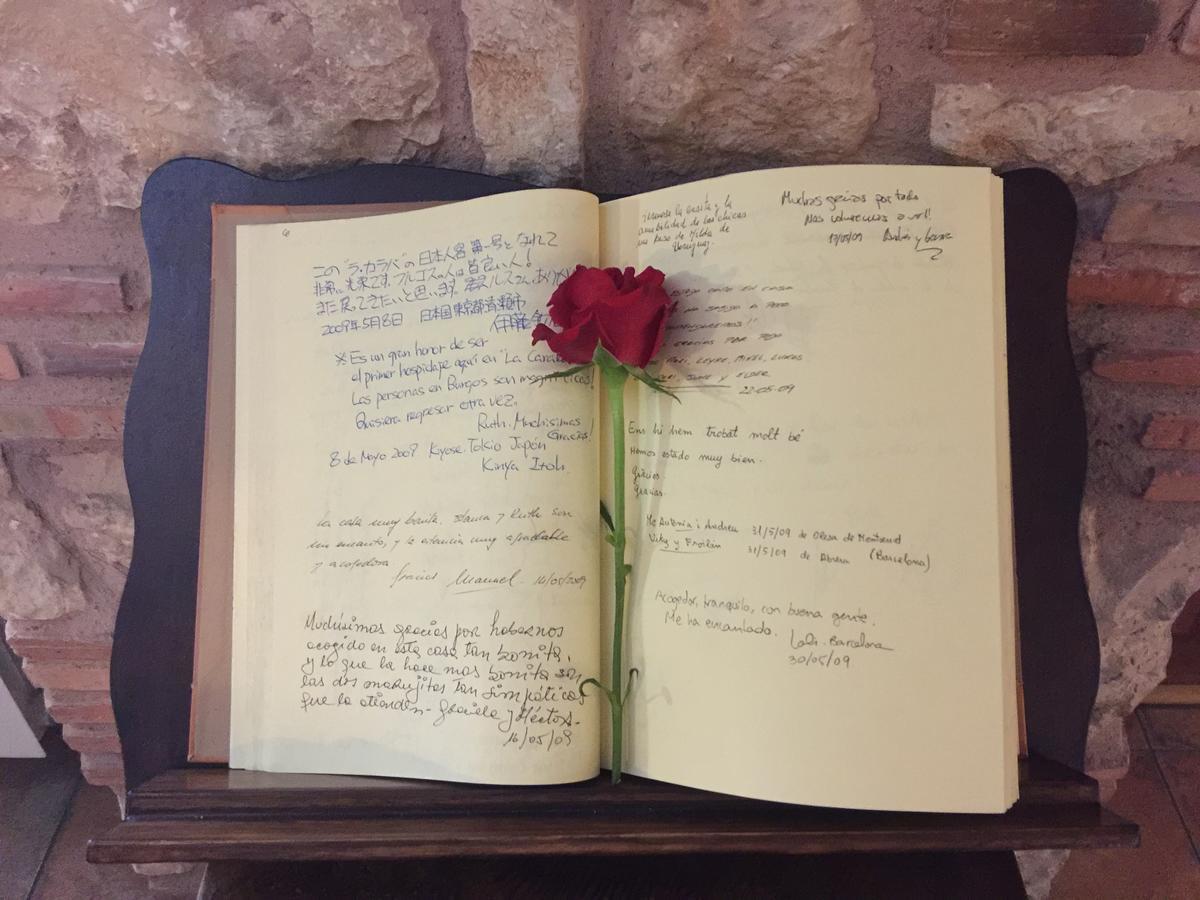 6
この"ラ・カラバ"の日本人客第一号となれて
非常に光栄です。ブルゴスの人は皆良い人!
また戻ってきたいと思います。 ルスさん、ありが
2009年5月8日 日本国東京都清瀬市
伊藤
※ Es un gran honor de ser
el primer hospidaje aquí en "La
Las personas en Burgos son magníficas!
Quisiera regresar otra vez.
Ruth. Muchisimas
Gracias!
8 de Mayo 2009 Kiyose. Tokio Japón
Kinya Itoh.
La casa muy bonita. y Ruth son
un encanto, y la atencia muy agradable
y acojedora
Gracias Manuel. 16/05/2009
Muchísimas gracias por habernos
acogido en esta casa tan bonita,
y lo que la hace mas bonita son
las dos marujitas tan simpáticas
que la atienden - Graciela y Héctor -
16/05/09
la visita y la
amabilidad de las chicas
Hilda de
Uruguay.
Muchas gracias por todo
Nos volveremos a ver!
17/05/09 y
como en casa
GRACIAS POR TODO
LEYRE, MIKEL, LUKAS
Y EIDER
22-05-09
Ens hi hem trobat molt bé
Hemos estado muy bien.
Gràcies.
Gracias.
Mª Antonia i Andreu 31/5/09 de Olesa de Montserrat
Viky y Froilán 31/5/09 de Abrera (Barcelona)
Acogedor, tranquilo, con buena gente.
Me ha encantado. Loli. Barcelona
30/05/09